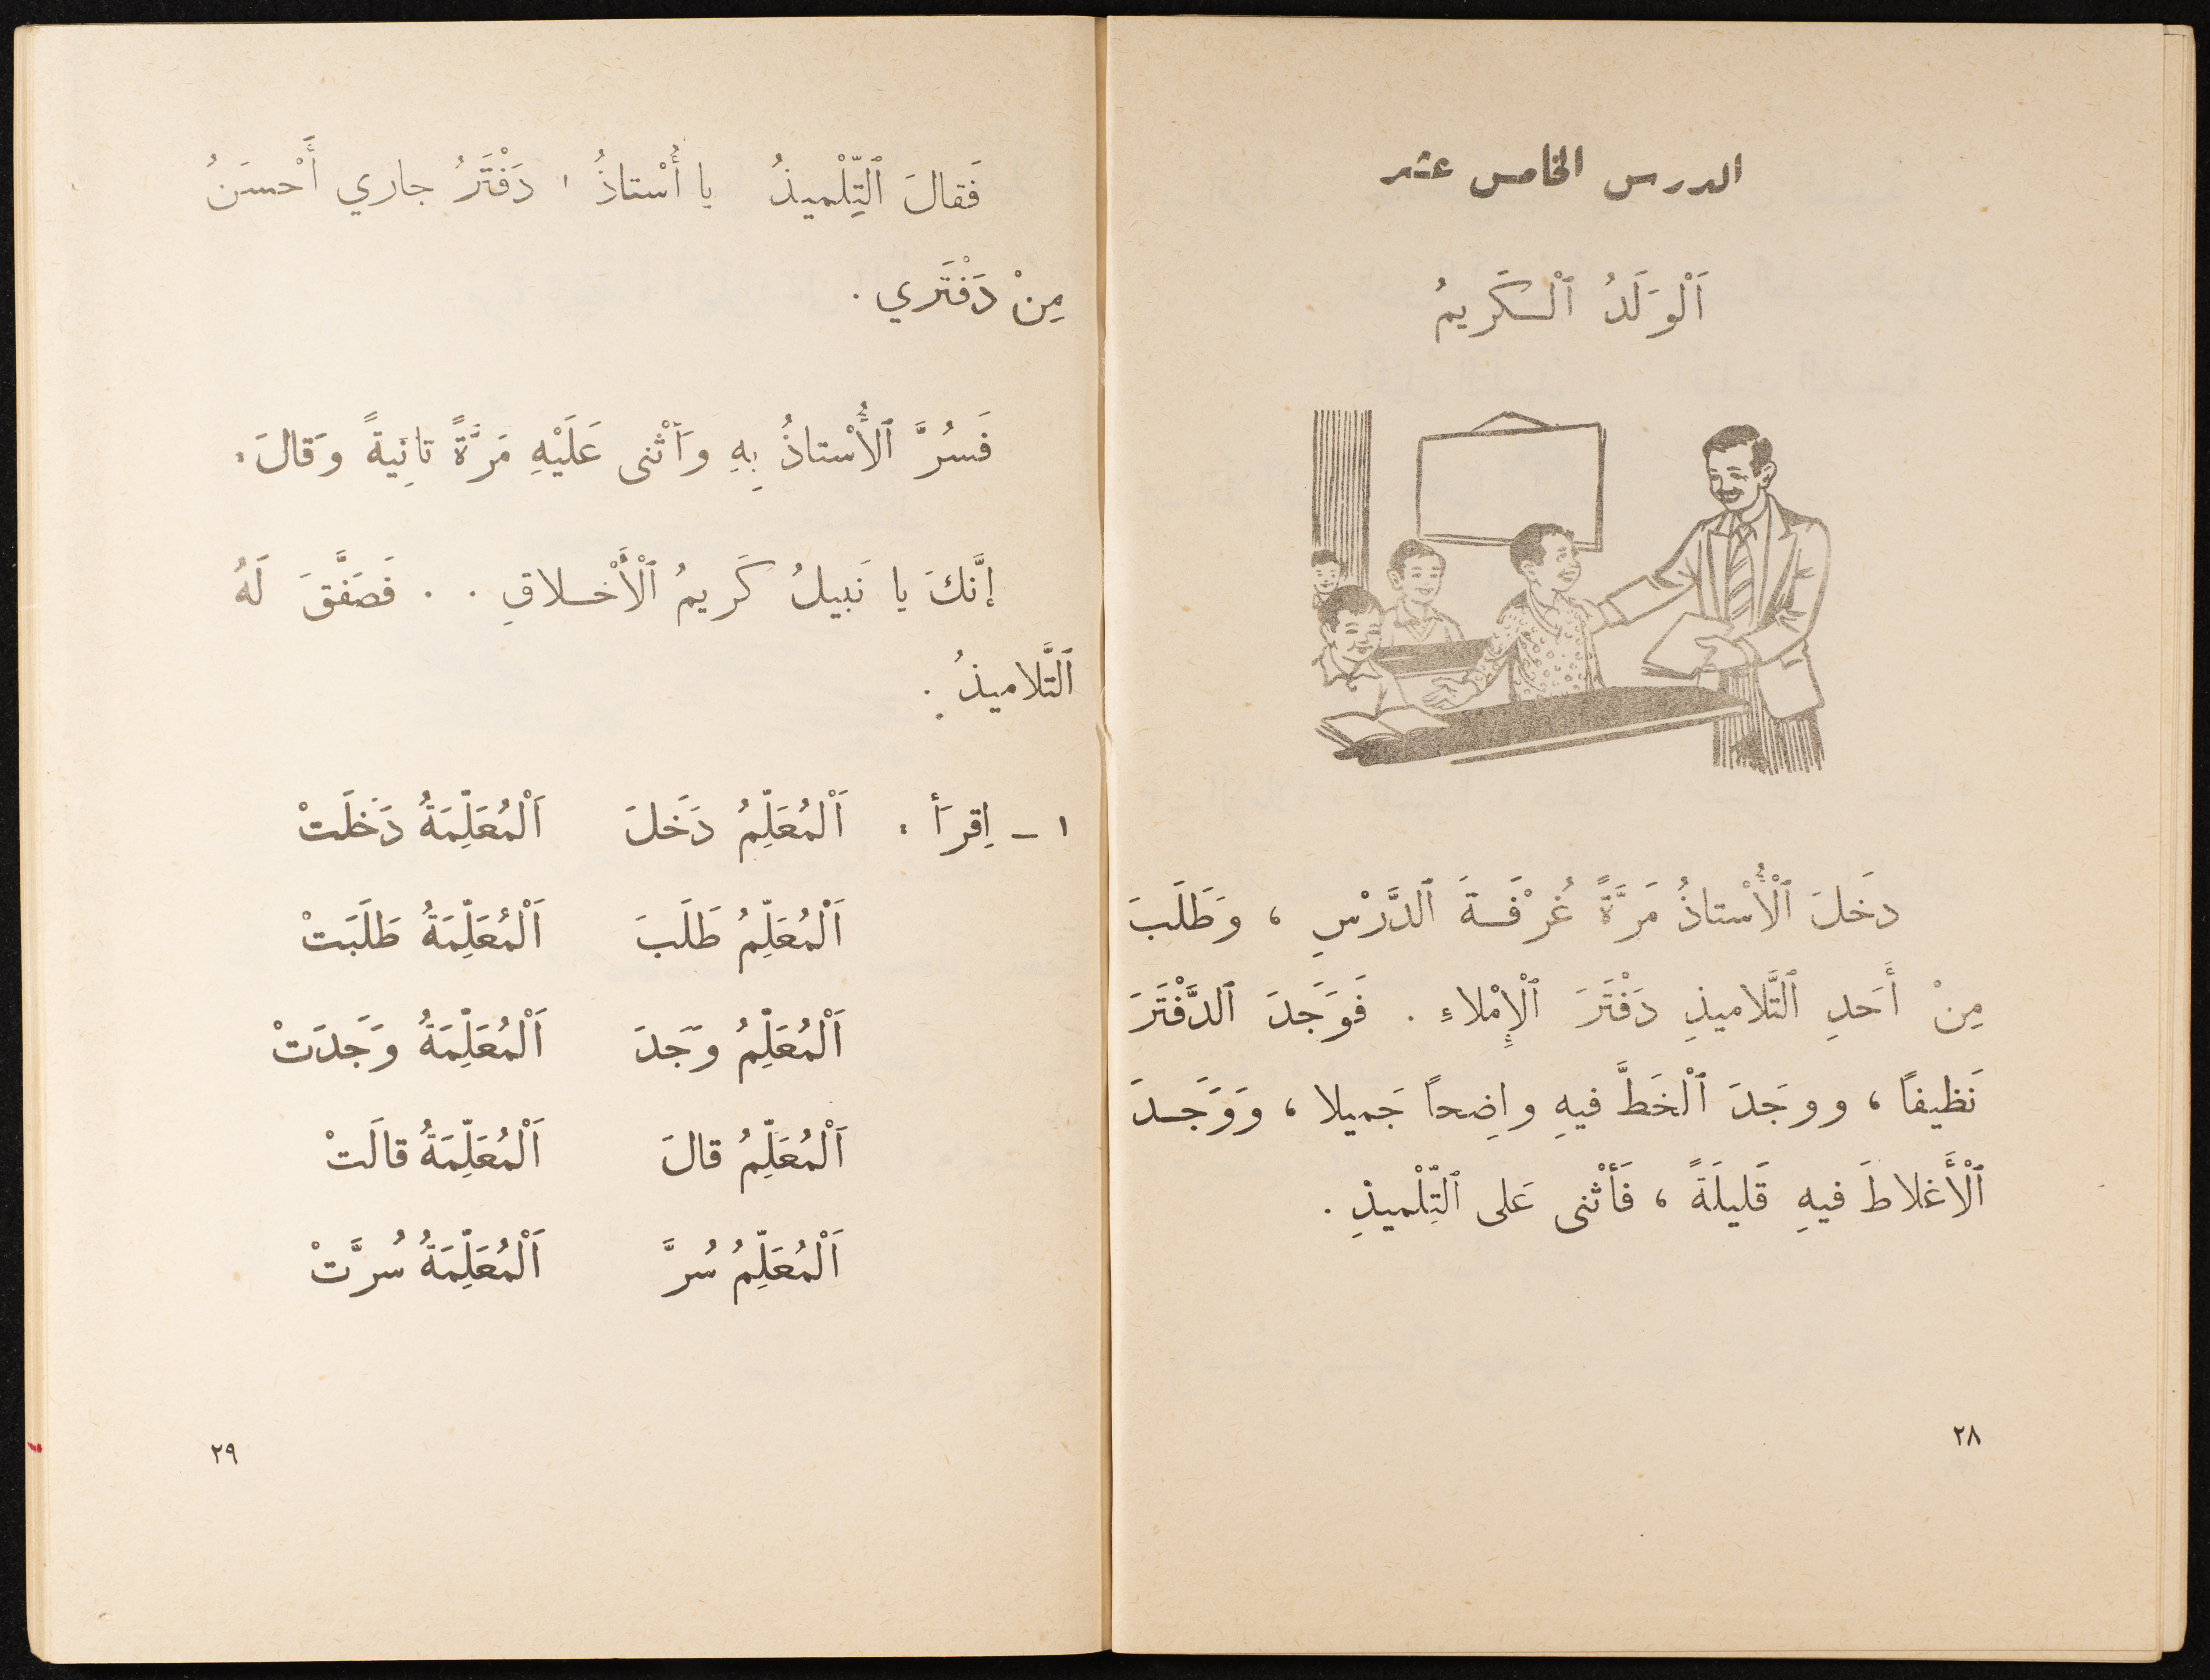 الدرس الخامس عشر
اَلْوَلَدُ ٱلْكَريمُ
دَخَلَ ٱلْأُسْتاذُ مَرَّةً غُرْفَةَ ٱلدَّرْسِ ، وَطَلَبَ
مِنْ أَحَدِ ٱلتَّلاميذِ دَفْتَرَ ٱلْإِمْلاءِ . فَوَجَدَ ٱلدَّفْتَرَ
نَظيفًا ، ووجَدَ ٱلْخَطَّ فيهِ واضِحاً جَميلا ، وَوَجَدَ
ٱلْأَغلاطَ فيهِ قَليلَةً ، فَأَثْنى عَلى ٱلتِّلْميذِ .
٢٨
فَقالَ ٱلتِّلْميذُ يا أُسْتاذُ ، دَفْتَرُ جاري أَحْسَنُ
مِنْ دَفْتَري .
فَسُرَّ ٱلأُسْتاذُ بِهِ وَأَثْنى عَلَيْهِ مَرَّةً ثانِيةً وَقالَ :
إنَّكَ يا نَبيلُ كَريمُ ٱلْأَخْلاقِ . . فَصَفَّقَ لَهُ
ٱلتَّلاميذُ .
١ ـ اِقرَأ : اَلْمُعَلِّمُ دَخَلَ اَلْمُعَلِّمَةُ دَخَلَتْ
اَلْمُعَلِّمُ طَلَبَ اَلْمُعَلِّمَةُ طَلَبَتْ
اَلْمُعَلِّمُ وَجَدَ اَلْمُعَلِّمَةُ وَجَدَتْ
اَلْمُعَلِّمُ قالَ اَلْمُعَلِّمَةُ قالَتْ
اَلْمُعَلِّمُ سُرَّ اَلْمُعَلِّمَةُ سُرَّتْ
٢٩